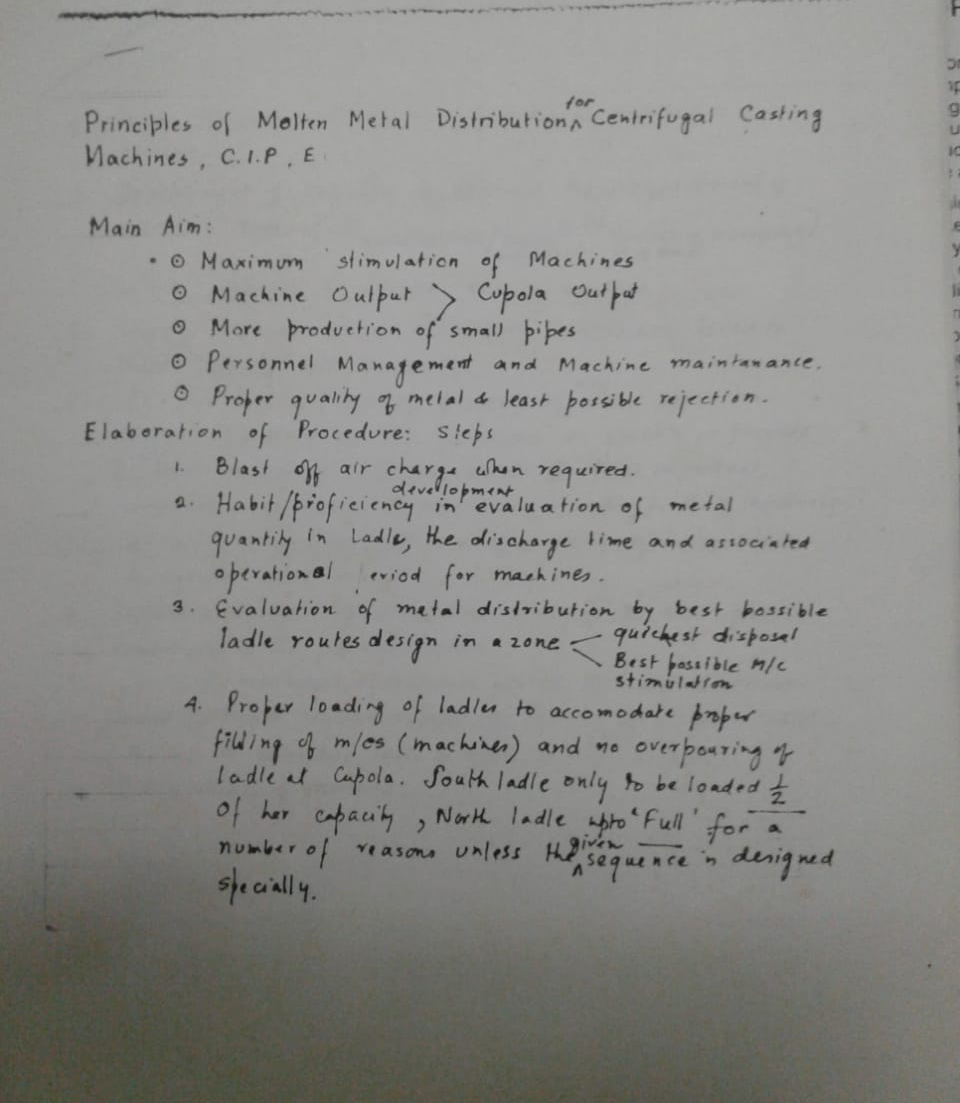 Principles of Molten Metal Distribution for Centrifugal Casting
Machines, C.I.P, E.
Main Aim:
⊙ Maximum stimulation of Machines
⊙ Machine Output > Cupola Output
⊙ More production of small pipes
⊙ Personnel Management and Machine maintanance.
⊙ Proper quality of metal & least possible rejection.
Elaboration of Procedure: Steps
1. Blast off air charge when required.
development
2. Habit/proficiency in evaluation of metal
quantity in Ladle, the discharge time and associated
operational eriod for machines.
3. Evaluation of metal distribution by best possible
ladle routes design in a zone quickest disposal
Best possible M/c
stimulation
4. Proper loading of ladles to accomodate proper
filling of m/cs (machines) and no overpouring of
ladle at Cupola. South ladle only to be loaded 1/2
Of her capacity, North ladle upto 'Full' for a
number of reasons unless the given sequence is designed
specially.